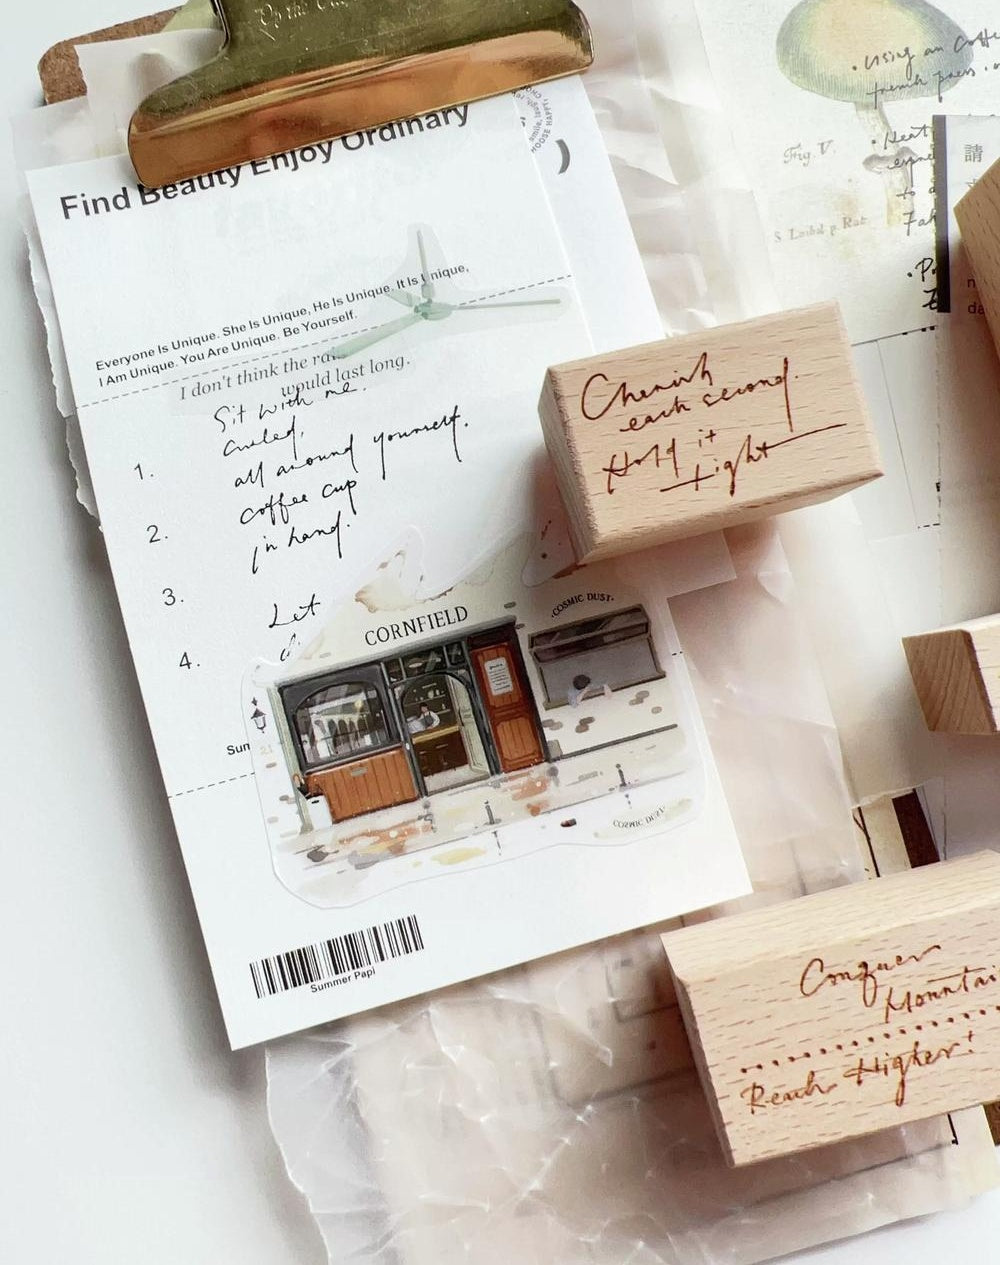 "On the
Find Beauty Enjoy Ordinary
smile, laugh,
HOOSE HAPPY
)
Everyone Is Unique. She Is Unique, He Is Unique. It Is Unique,
I Am Unique. You Are Unique. Be Yourself.
I don't think the rain
would last long.
Sit with me.
1.
all around yourself.
2.
coffee cup
in hand.
3.
Let
4.
Sun
21
CORNFIELD
·COSMIC DUST·
COSMIC DUST
Summer Papi
Cherish
each second.
Hold it
tight
· Using an Coffe
french press.
· Heat
to a
Fig. V.
S. Loibel p. Rat
請
n
da
Conquer
Mountai
Reach Higher!